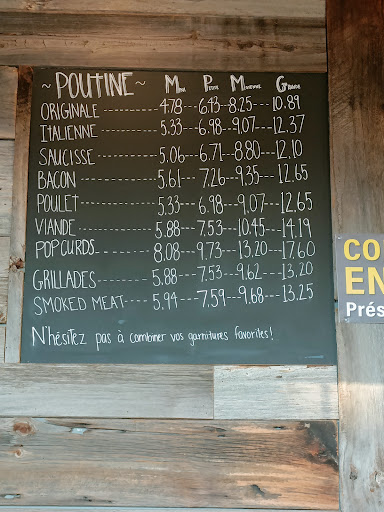 ~ POUTINE ~ Mini Petite Moyenne Grande
ORIGINALE ---------- 4.78 --- 6.13 -- 8.25 --- 10.89
ITALIENNE ---------- 5.33 --- 6.98 --- 9.07 --- 12.37
SAUCISSE ---------- 5.06 --- 6.71 --- 8.80 --- 12.10
BACON ---------- 5.61 --- 7.26 --- 9.35 --- 12.65
POULET ---------- 5.33 --- 6.98 --- 9.07 --- 12.65
VIANDE ---------- 5.88 --- 7.53 --- 10.45 --- 14.19
POPCURDS --- 8.08 --- 9.73 --- 13.20 --- 17.60
GRILLADES -------- 5.88 --- 7.53 --- 9.62 --- 13.20
SMOKED MEAT ---- 5.94 --- 7.59 --- 9.68 --- 13.25
N'hésitez pas à combiner vos garnitures favorites!
CO
EN
Prés